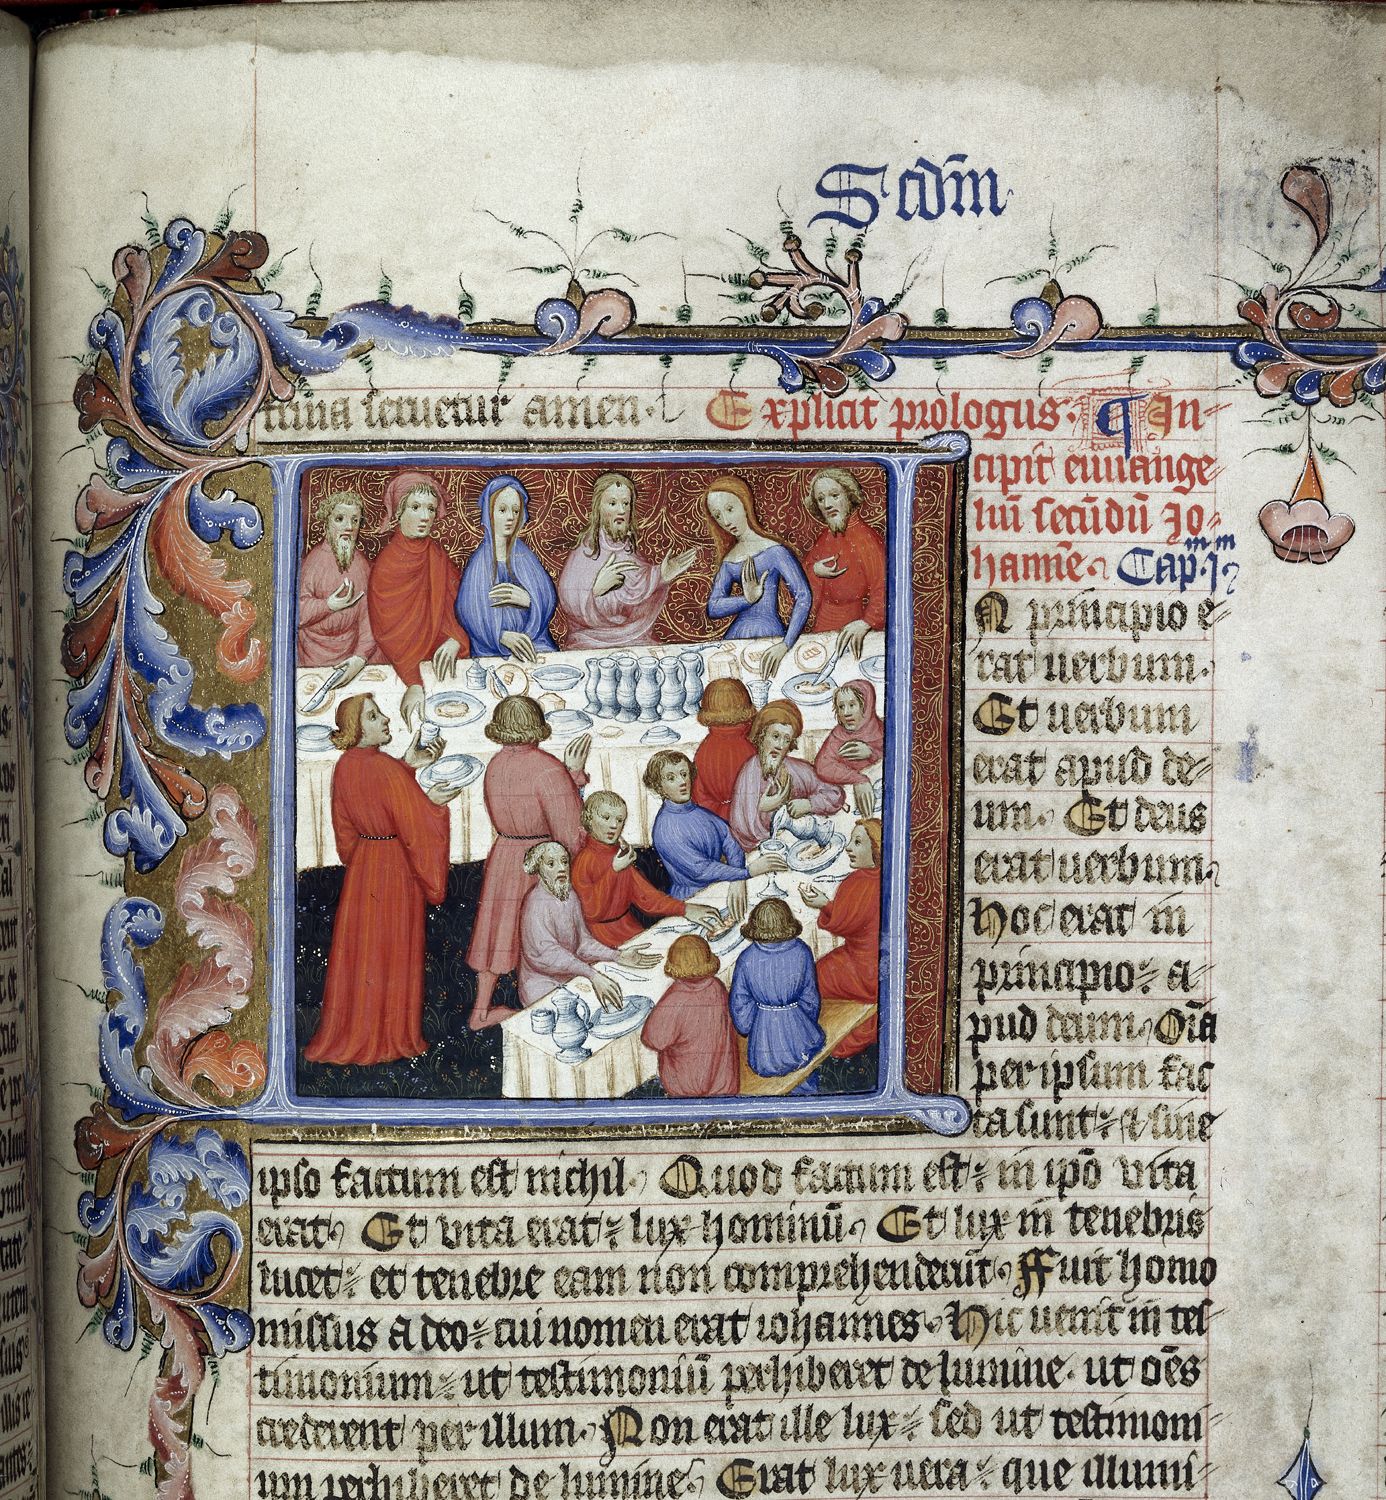 Scdm̄
trina seruetur amen. Explicit prologus. ¶ In-
cipit euuange
liū secūdū Jo-
hannē. Capm. jm
N principio e-
rat uerbum.
Et uerbum
erat apud de-
um. Et deus
erat uerbum.
Hoc erat in
principio: a-
pud deum. Oīa
per ipsum fac
ta sunt: et sine
ipso factum est nichil. Quod factum est: in ipō vita
erat. Et vita erat: lux hominū. Et lux in tenebris
lucet: et tenebre eam non comprehenderūt. Fuit homo
missus a deo: cui nomen erat iohannes. Hic uenit in tes-
timonium: ut testimoniū perhiberet de lumine. ut oēs
crederent per illum. Non erat ille lux: sed ut testimoni-
um perhiberet de lumine. Erat lux uera: que illumi-